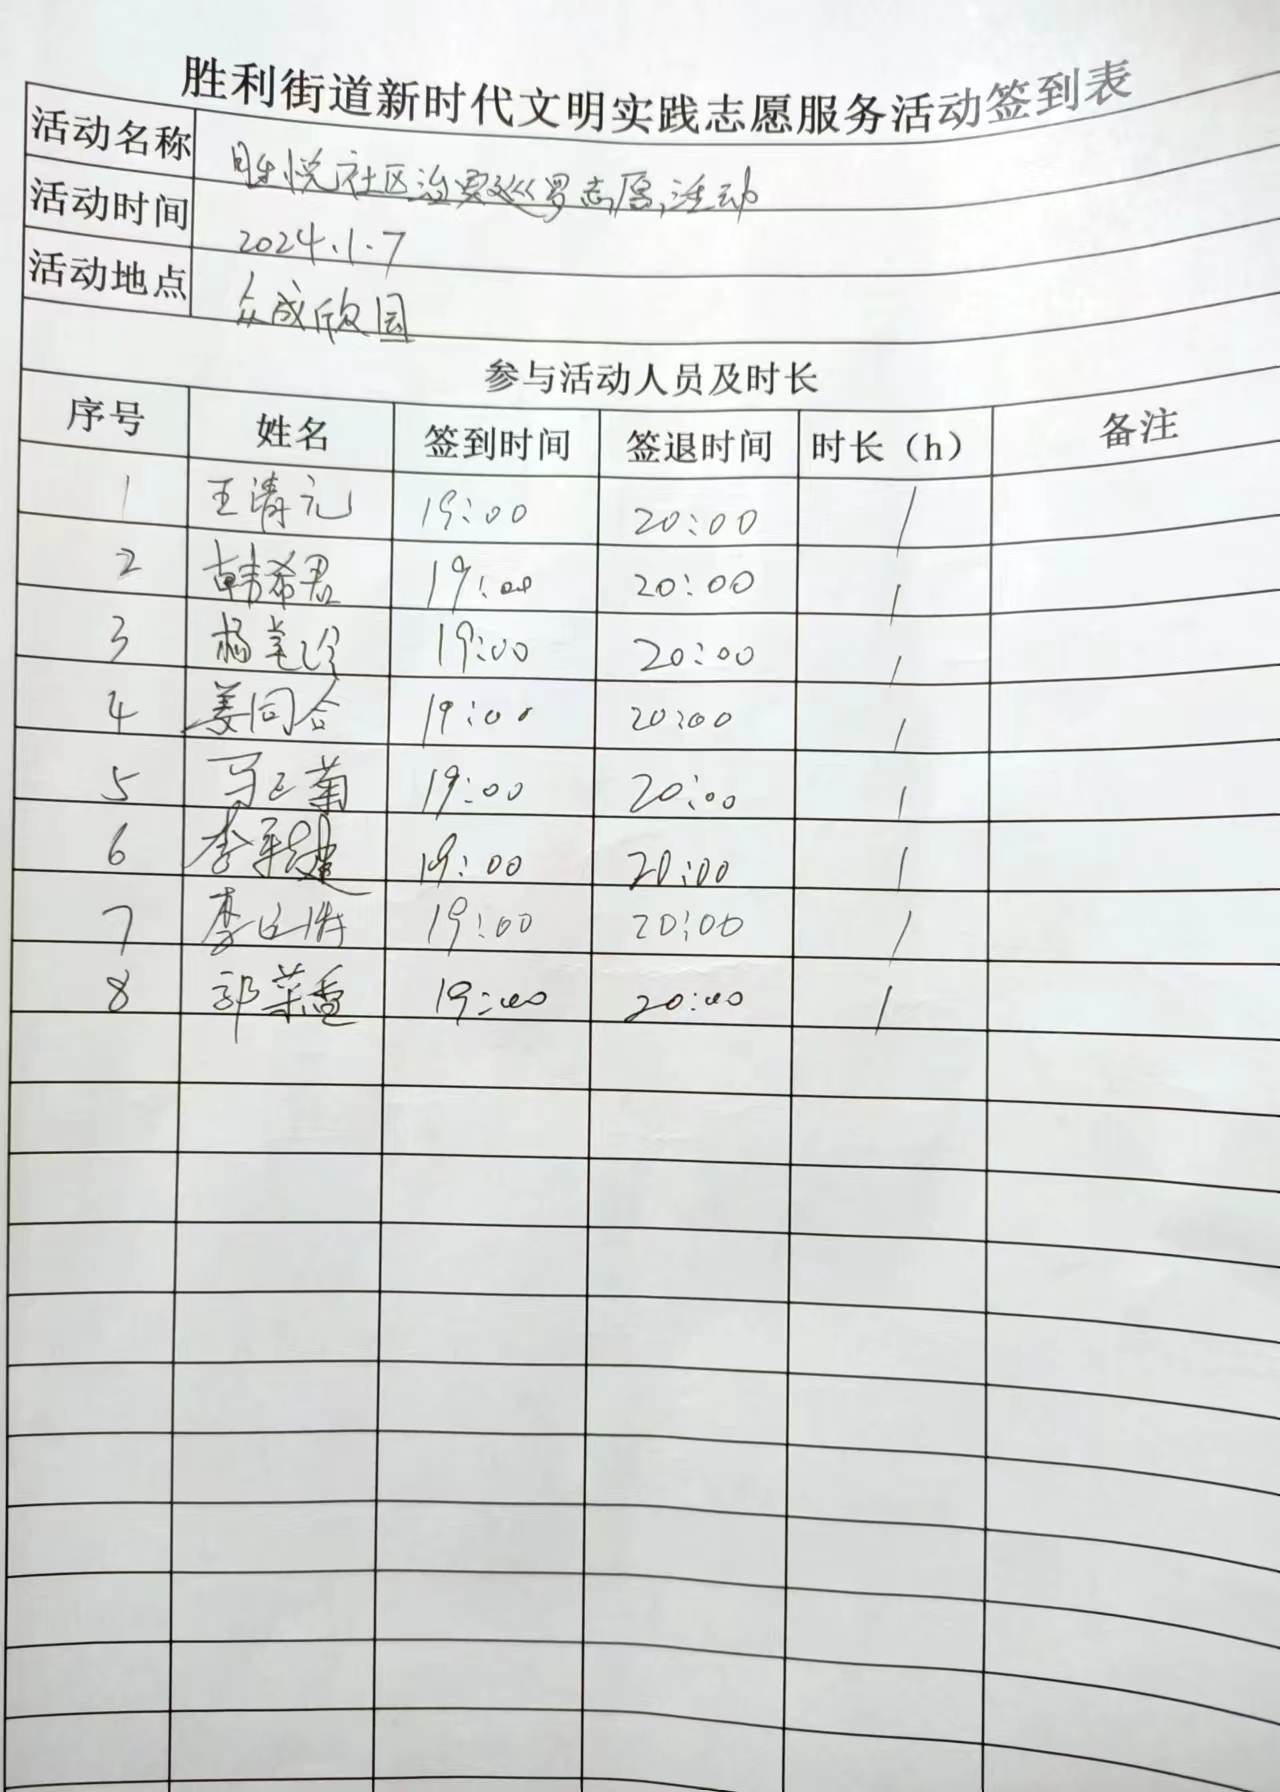 胜利街道新时代文明实践志愿服务活动签到表
活动名称 胜悦社区治安巡逻志愿活动
活动时间 2024.1.7
活动地点 众成欣园
参与活动人员及时长
序号 姓名 签到时间 签退时间 时长（h） 备注
1 王清元 19:00 20:00 1
2 韩希君 19:00 20:00 1
3 杨 19:00 20:00 1
4 姜同合 19:00 20:00 1
5 马正菊 19:00 20:00 1
6 李 建 19:00 20:00 1
7 李 19:00 20:00 1
8 郭荣香 19:00 20:00 1